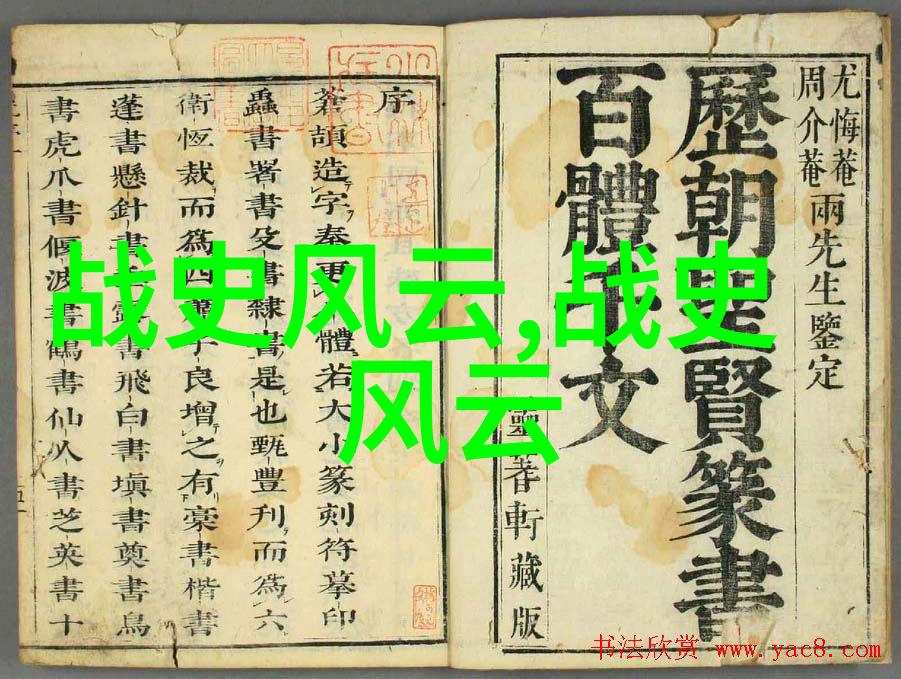 尤悔菴
周介菴
兩先生鑒定
歷朝聖賢篆書
百體千文
靈蓍軒藏版
序
蒼頡造字秦更八體若大小篆刻符摹印
蟲書署書殳書隸書是也甄豐刋而爲六
衛恆裁而爲四蕭子良增之有藁書楷書
蓬書懸針書垂露書飛白書塡書奠書鳥
書虎爪書偃波書鶴書仙人書芝英書十
战史风云,战史
风云
书法欣赏 www.yac8.com